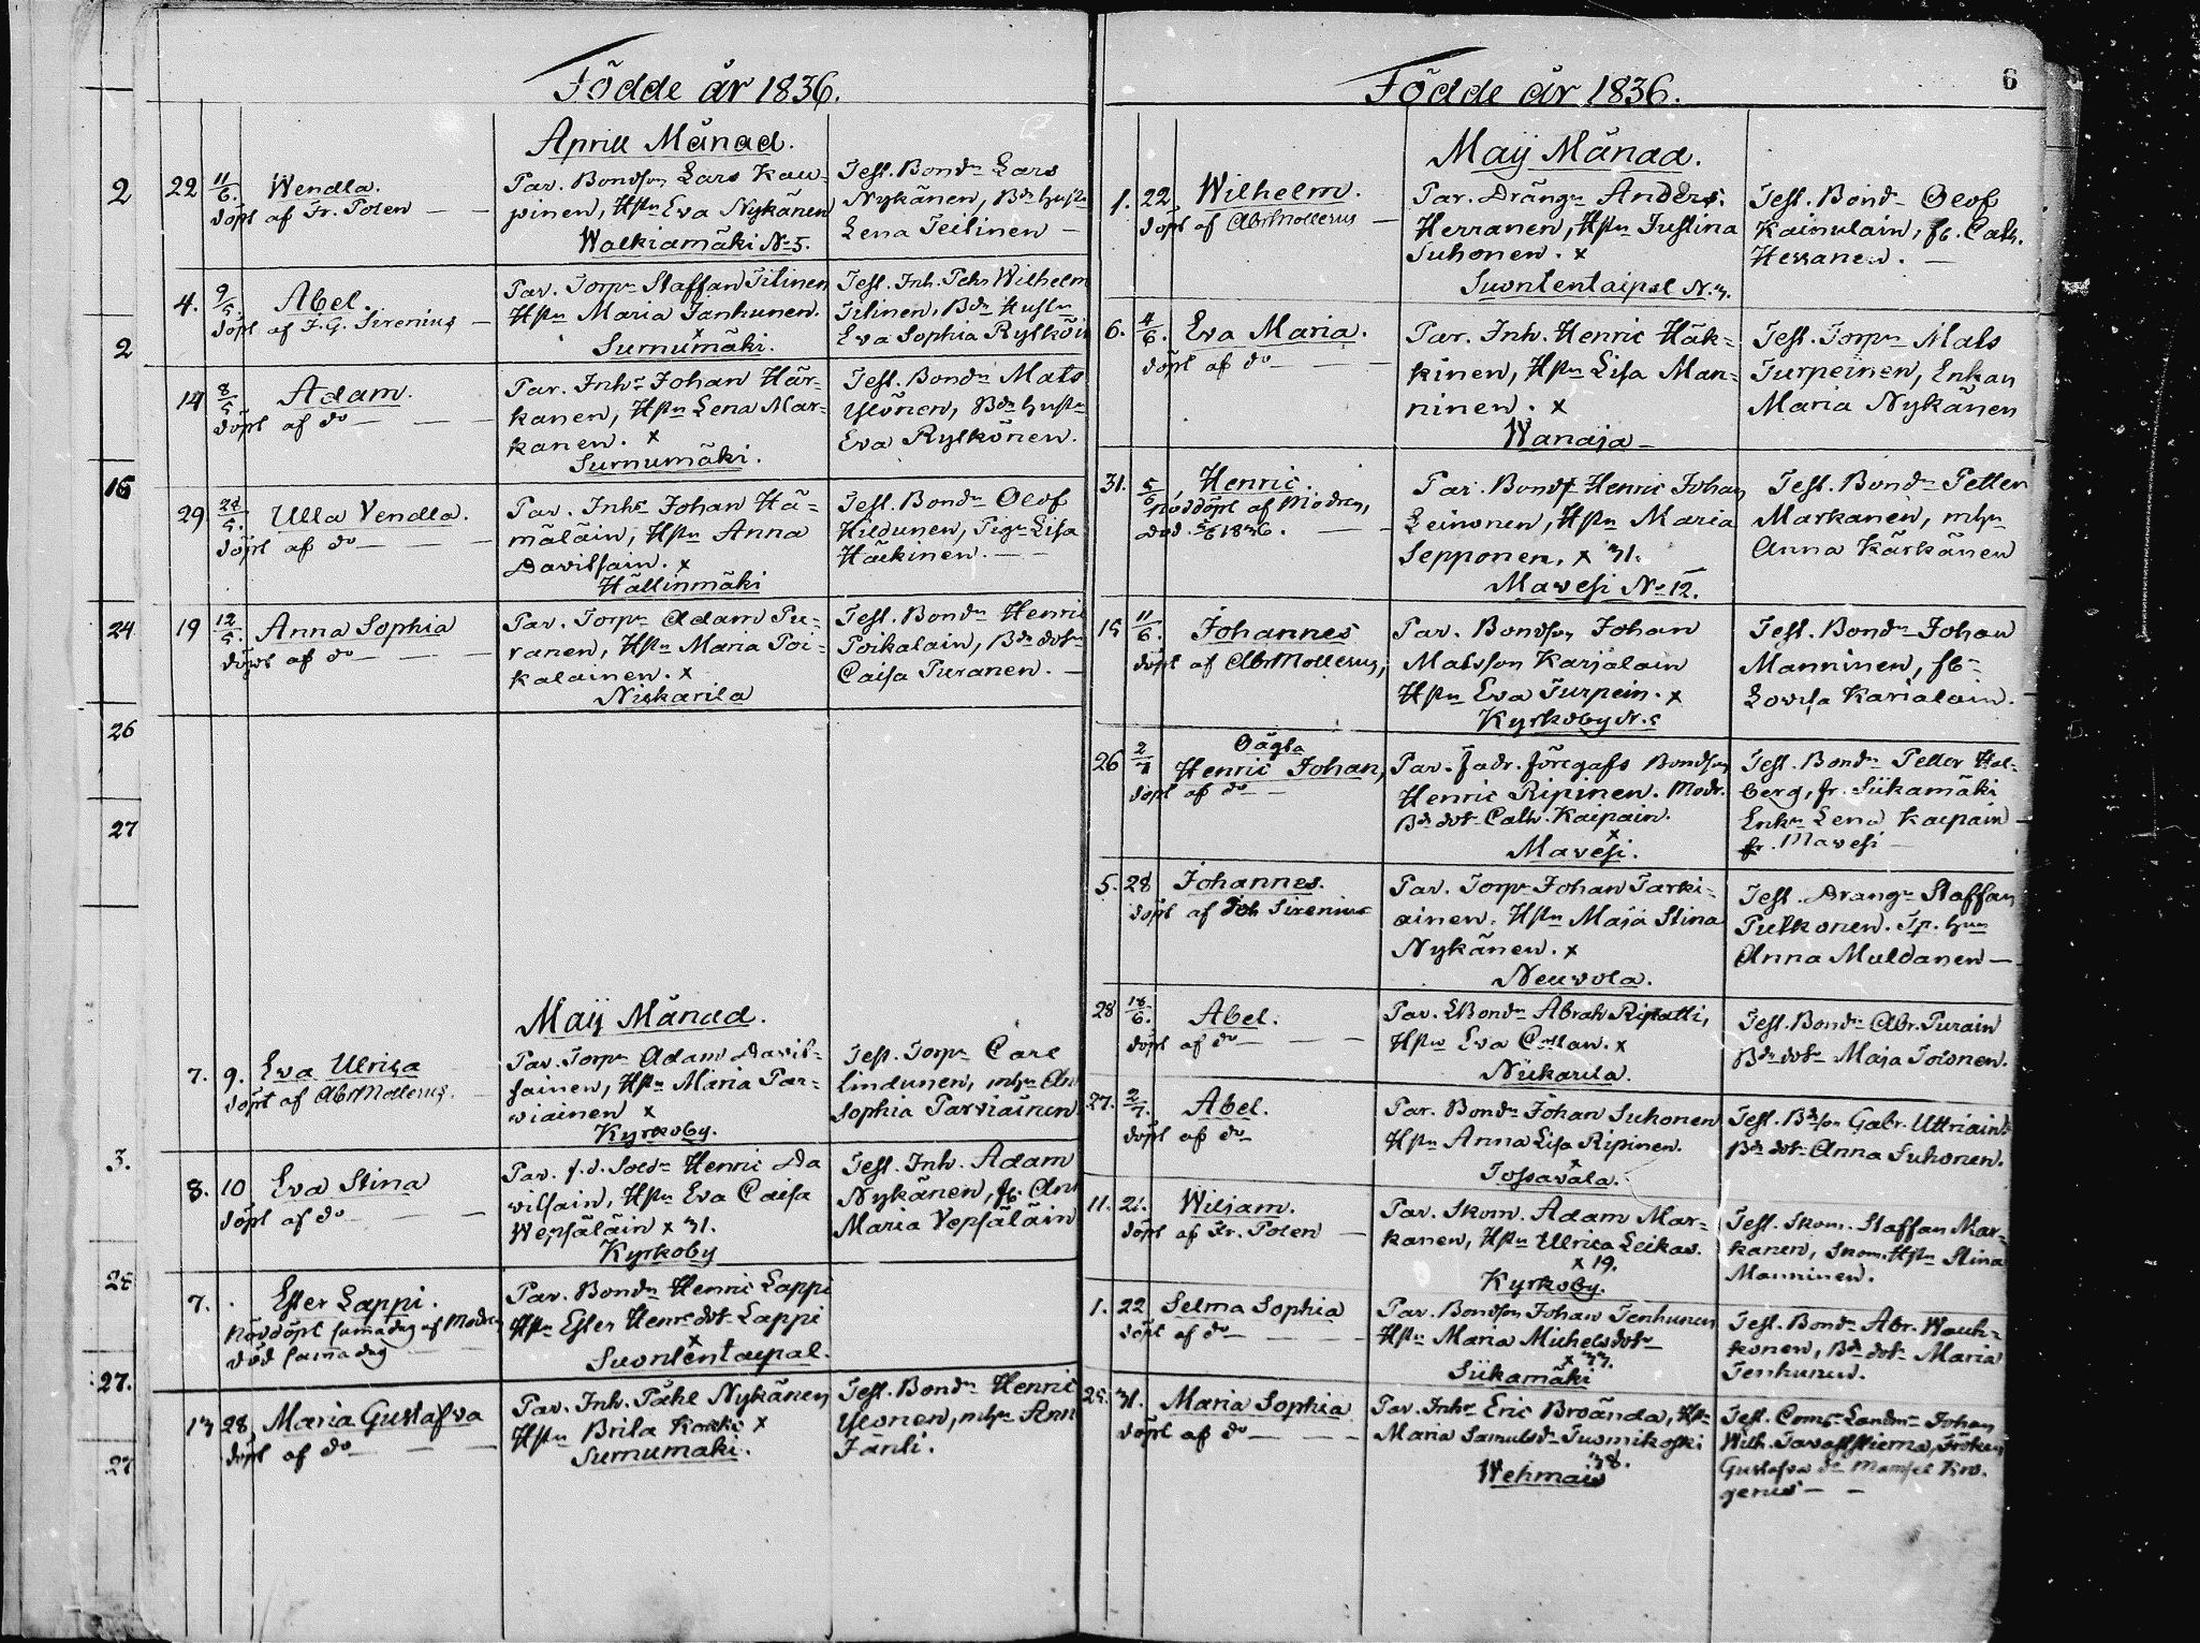 Födde år 1836.
Aprill Månad.
22 11/6. Wendla.
döpt af Fr. Polen
Par. Bondson Lars Kau-
pinen, Hstu Eva Nykänen
Walkiamäki No 5.
Test. Bondn Lars
Nykänen, Bdn hustu
Lena Teilinen
4. 9/5. Abel.
döpt af F.G. Sirenius
Par. Torpr Staffan Tilinen
Hstu Maria Janhunen.
x
Surnumäki.
Test. Inh. Pehr Wilhelm
Tilinen, Bdn Hustu
Eva Sophia Rytkön
14 8/5 Adam.
döpt af do
Par. Inhs Johan Här-
kanen, Hstu Lena Mar-
kanen. x
Surnumäki.
Test. Bondn Mats
Ylönen, Bdn hustu
Eva Rytkönen.
29 22/5. Ulla Vendla.
döpt af do
Par. Inhs Johan Hä-
mäläin, Hstu Anna
Davitsain. x
Hällinmäki
Test. Bondn Olof
Hildunen, Pign Lisa
Häckinen.
19 12/5. Anna Sophia
döpt af do
Par. Torpr Adam Pu-
ranen, Hstu Maria Poi-
kalainen. x
Niskarila
Test. Bondn Henric
Poikalain, Bdn dotr
Caisa Puranen.
Maij Månad.
7. 9. Eva Ulrica
döpt af AbrMollerus.
Par. Torpr Adam Davit-
sainen, Hstu Maria Par-
wiainen x
Kyrkoby.
Test. Torpr Carl
Lindunen, mhu An
Sophia Parviainen
8. 10 Eva Stina
döpt af do
Par. f.d. Soldn Henric Da
vitsain, Hstu Eva Caisa
Wepsäläin x 31.
Kyrkoby
Test. Inh. Adam
Nykänen, fb. Ann
Maria Vepsäläin
7. Ester Lappi.
Nöddöpt samadag af Modren
död samadag
Par. Bondn Henric Lappi
Hstu Ester Henrsdotr Lappi
x
Suontentaipal.
13 28. Maria Gustafva
döpt af do
Par. Inh. Påhl Nykänen
Hstu Brita Koski x
Surnumäki.
Test. Bondn Henric
Ylönen, mhu Ann
Jänti.
2
2
15
24
26
27
3.
28
27.
27
Födde år 1836.
6
Maij Månad.
1. 22. Wilhelm.
döpt af AbrMollerus
Par. Drängn Anders
Herranen, Hstu Justina
Suhonen. x
Suontentaipal N.3.
Test. Bondn Olof
Kainulain, fb. Cath.
Herranen.
6. 4/6. Eva Maria.
döpt af do
Par. Inh. Henric Häk-
kinen, Hstu Lisa Man-
ninen. x
Wanaja
Test. Torpr Mats
Turpeinen, Enkan
Maria Nykänen
31. 5/6. Henric.
nöddöpt af Modren,
död 5/6 1836.
Par. Bonds Henric Johan
Leinonen, Hstu Maria
Sepponen. x 31.
Mavesi No 12.
Test. Bondn Petter
Markanen, mhu
Anna Kärkänen
15 11/6. Johannes
döpt af AbrMollerus,
Par. Bondson Johan
Matsson Karjalain
Hstu Eva Turpein. x
Kyrkoby N.5
Test. Bondn Johan
Manninen, fb
Lovisa Karialain.
26 2/7 Oägta
Henric Johan,
döpt af do
Par. fadr. föregafs Bondson
Henric Ripinen. Modr.
Bdn dotr Cath. Kaipain.
x
Mavesi.
Test. Bondn Petter Hol-
berg, fr. Siikamäki
Enkn Lena Kaipain
fr. Mavesi
5. 28 Johannes.
döpt af Joh Sirenius
Par. Torpr Johan Tarki-
ainen. Hstu Maja Stina
Nykänen. x
Neuvola.
Test. Drangn Staffan
Pulkonen. Tp. hun
Anna Muldanen
28 18/6. Abel.
döpt af do
Par. LBondn Abrah Ripatti,
Hstu Eva Collan. x
Niskarila.
Test. Bondn Abr. Purain
Bdn dotr Maja Tolonen.
27. 2/7. Abel.
döpt af do
Par. Bondn Johan Suhonen
Hstu Anna Lisa Ripinen.
x
Tossavala.
Test. Bdson Gabr. Uttriain
Bdn dotr Anna Suhonen.
11. 21. Wiliam.
döpt af Fr. Polen
Par. Skom. Adam Mar-
kanen, Hstu Ulrica Leikas.
x 19.
Kyrkoby.
Test. Skom. Staffan Mar-
kanen, Snom. Hstu Stina
Manninen.
1. 22 Selma Sophia
döpt af do
Par. Bondson Johan Tenhunen
Hstu Maria Michelsdotr
x 33.
Siikamäki
Test. Bondn Abr. Wauh-
konen, Bdn dotr Maria
Tenhunen.
25. 31. Maria Sophia
döpt af do
Par. Inhr Eric Broända, Hst
Maria Samulsdr Tuomikoski
38.
Wehmais
Test. Coms Landm Johan
Wilh. Tavaststierna, Fröken
Gustafva de Mamsel Kro-
genius